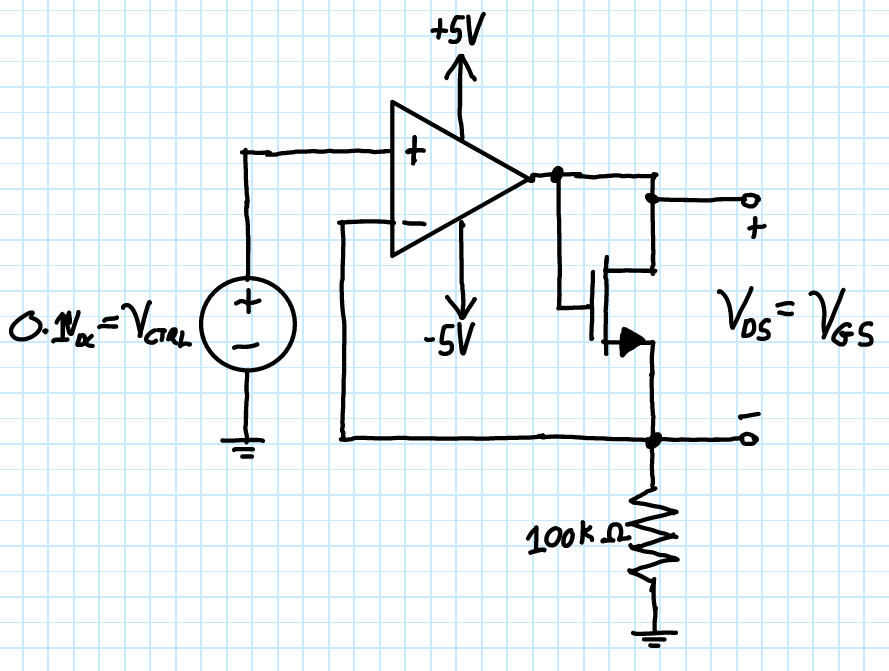 +5V
+
−
-5V
+
−
0.1V_DC = V_CTRL
+
V_DS = V_GS
−
100k Ω